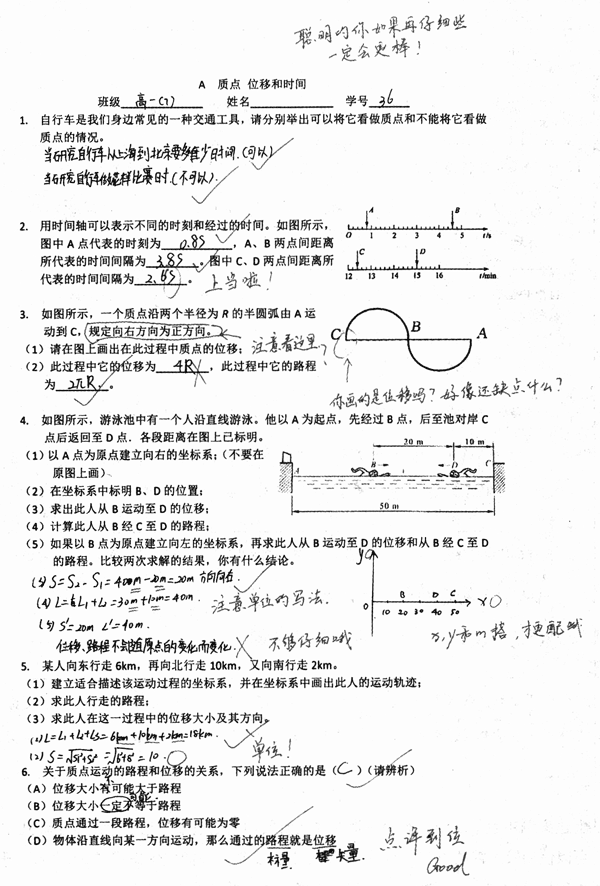 聪明的你如果再仔细些
一定会更棒！
A 质点 位移和时间
班级 高一(7) 姓名 学号 36
1. 自行车是我们身边常见的一种交通工具，请分别举出可以将它看做质点和不能将它看做
质点的情况。
当研究自行车从上海到北京要多少时间.(可以)
当研究自行车做花样比赛时.(不可以).
2. 用时间轴可以表示不同的时刻和经过的时间。如图所示，
图中 A 点代表的时刻为 0.8s ，A、B 两点间距离
所代表的时间间隔为 3.8s 。图中 C、D 两点间距离所
代表的时间间隔为 2.6s 。 上当啦！
A B
0 1 2 3 4 5 t/s
C D
12 13 14 15 16 t/min
3. 如图所示，一个质点沿两个半径为 R 的半圆弧由 A 运
动到 C，规定向右方向为正方向。
C B A
（1）请在图上画出在此过程中质点的位移； 注意看这里
（2）此过程中它的位移为 4R ，此过程中它的路程
为 2πR 。
你画的是位移吗？好像还缺点什么？
4. 如图所示，游泳池中有一个人沿直线游泳。他以 A 为起点，先经过 B 点，后至池对岸 C
点后返回至 D 点．各段距离在图上已标明。
（1）以 A 点为原点建立向右的坐标系；(不要在
原图上画)
（2）在坐标系中标明 B、D 的位置；
（3）求出此人从 B 运动至 D 的位移；
（4）计算此人从 B 经 C 至 D 的路程；
20 m 10 m
A B D C
50 m
（5）如果以 B 点为原点建立向左的坐标系，再求此人从 B 运动至 D 的位移和从 B 经 C 至 D
的路程。比较两次求解的结果，你有什么结论。
(3) S=S₂-S₁=400m-20m=20m 方向向右
(4) L=L₁+L₂=30m+10m=40m. 注意单位的写法.
(5) S'=20m L'=40m.
位移、路程不会随原点的变化而变化. 不够仔细哦
y
0 B D C x
10 20 30 40 50
x,y和m搭，才更配哦
5. 某人向东行走 6km，再向北行走 10km，又向南行走 2km。
（1）建立适合描述该运动过程的坐标系，并在坐标系中画出此人的运动轨迹；
（2）求此人行走的路程；
（3）求此人在这一过程中的位移大小及其方向。
(2) L=L₁+L₂+L₃=6km+10km+2km=18km.
=10. 单位！
6. 关于质点运动的路程和位移的关系，下列说法正确的是（ C ）(请辨析)
（A）位移大小有可能大于路程
（B）位移大小一定不等于路程
（C）质点通过一段路程，位移有可能为零
（D）物体沿直线向某一方向运动，那么通过的路程就是位移
标量 矢量.
点评到位
Good